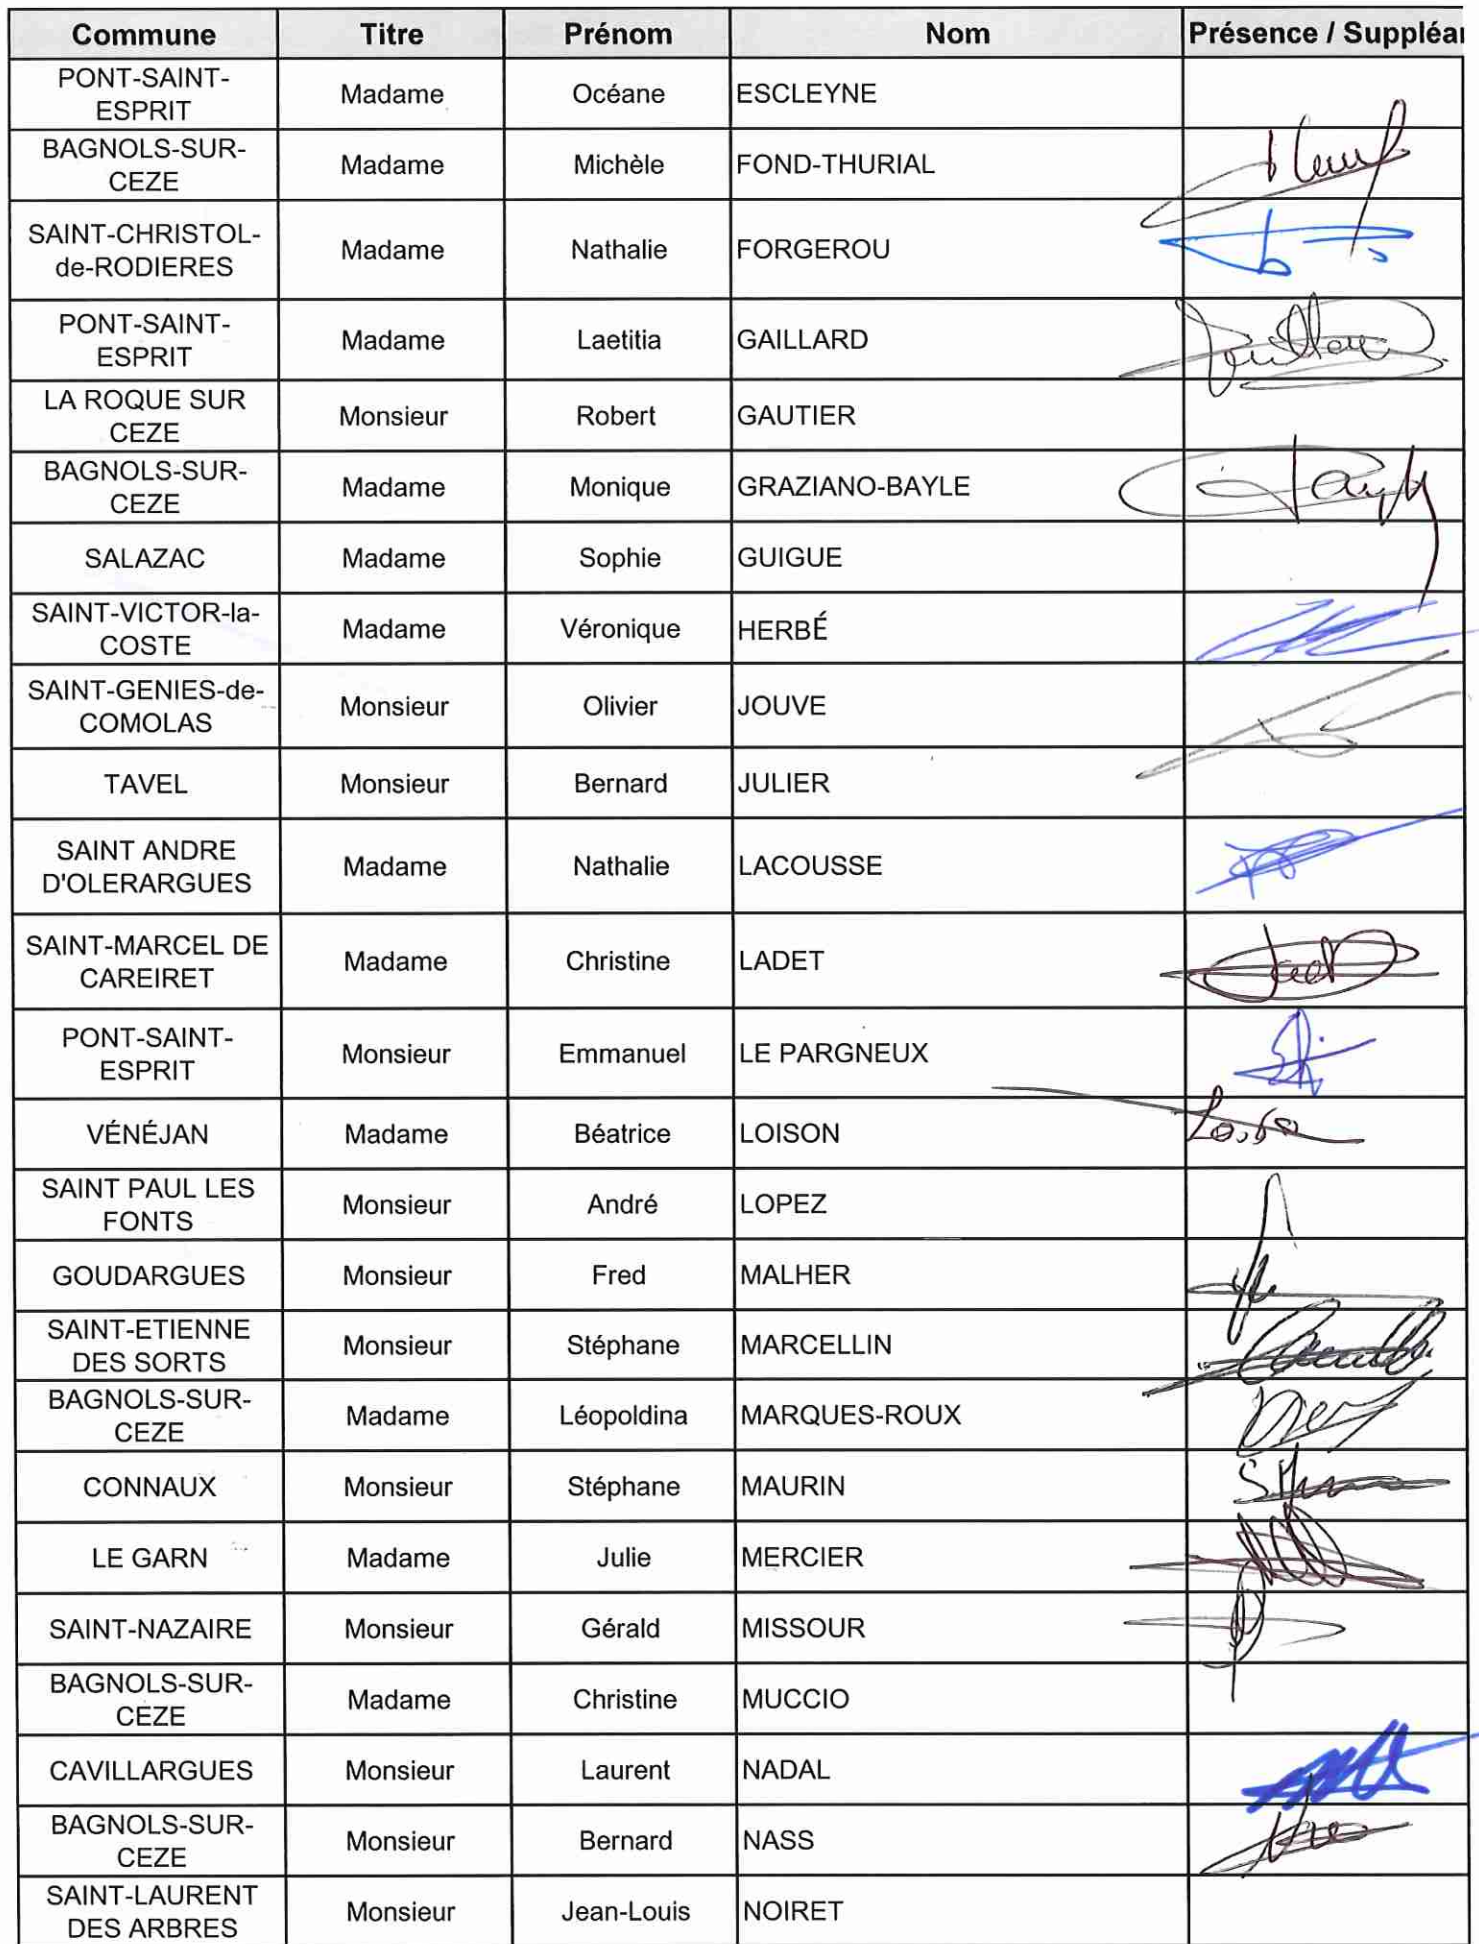 Commune Titre Prénom Nom Présence / Suppléa
PONT-SAINT-
ESPRIT Madame Océane ESCLEYNE
BAGNOLS-SUR-
CEZE Madame Michèle FOND-THURIAL
SAINT-CHRISTOL-
de-RODIERES Madame Nathalie FORGEROU
PONT-SAINT-
ESPRIT Madame Laetitia GAILLARD
LA ROQUE SUR
CEZE Monsieur Robert GAUTIER
BAGNOLS-SUR-
CEZE Madame Monique GRAZIANO-BAYLE
SALAZAC Madame Sophie GUIGUE
SAINT-VICTOR-la-
COSTE Madame Véronique HERBÉ
SAINT-GENIES-de-
COMOLAS Monsieur Olivier JOUVE
TAVEL Monsieur Bernard JULIER
SAINT ANDRE
D'OLERARGUES Madame Nathalie LACOUSSE
SAINT-MARCEL DE
CAREIRET Madame Christine LADET
PONT-SAINT-
ESPRIT Monsieur Emmanuel LE PARGNEUX
VÉNÉJAN Madame Béatrice LOISON
SAINT PAUL LES
FONTS Monsieur André LOPEZ
GOUDARGUES Monsieur Fred MALHER
SAINT-ETIENNE
DES SORTS Monsieur Stéphane MARCELLIN
BAGNOLS-SUR-
CEZE Madame Léopoldina MARQUES-ROUX
CONNAUX Monsieur Stéphane MAURIN
LE GARN Madame Julie MERCIER
SAINT-NAZAIRE Monsieur Gérald MISSOUR
BAGNOLS-SUR-
CEZE Madame Christine MUCCIO
CAVILLARGUES Monsieur Laurent NADAL
BAGNOLS-SUR-
CEZE Monsieur Bernard NASS
SAINT-LAURENT
DES ARBRES Monsieur Jean-Louis NOIRET